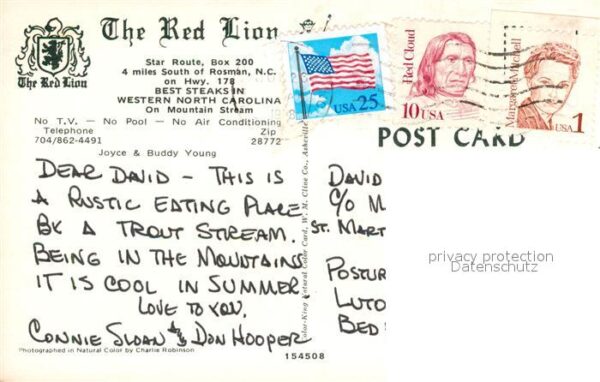 The Red Lion
The Red Lion
Star Route, Box 200
4 miles South of Rosman, N.C.
on Hwy. 178
BEST STEAKS IN
WESTERN NORTH CAROLINA
On Mountain Stream
No T.V. – No Pool – No Air Conditioning
Telephone Zip
704/862-4491 28772
Joyce & Buddy Young
DEAR DAVID – THIS IS
A RUSTIC EATING PLACE
BY A TROUT STREAM.
BEING IN THE MOUNTAINS
IT IS COOL IN SUMMER
LOVE TO YOU,
CONNIE SLOAN & DON HOOPER
Photographed in Natural Color by Charlie Robinson
154508
Color-King Natural Color Card, W. M. Cline Co., Asheville
USA 25
Red Cloud
10 USA
Margaret Mitchell
USA 1
POST CARD
DAVID
C/O M
ST. MART
POSTUR
LUTO
BED
privacy protection
Datenschutz